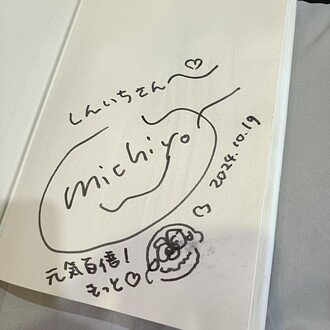 しんいちさん〜♡
michiyo
2024.10.19
元気百倍！
もっと♡